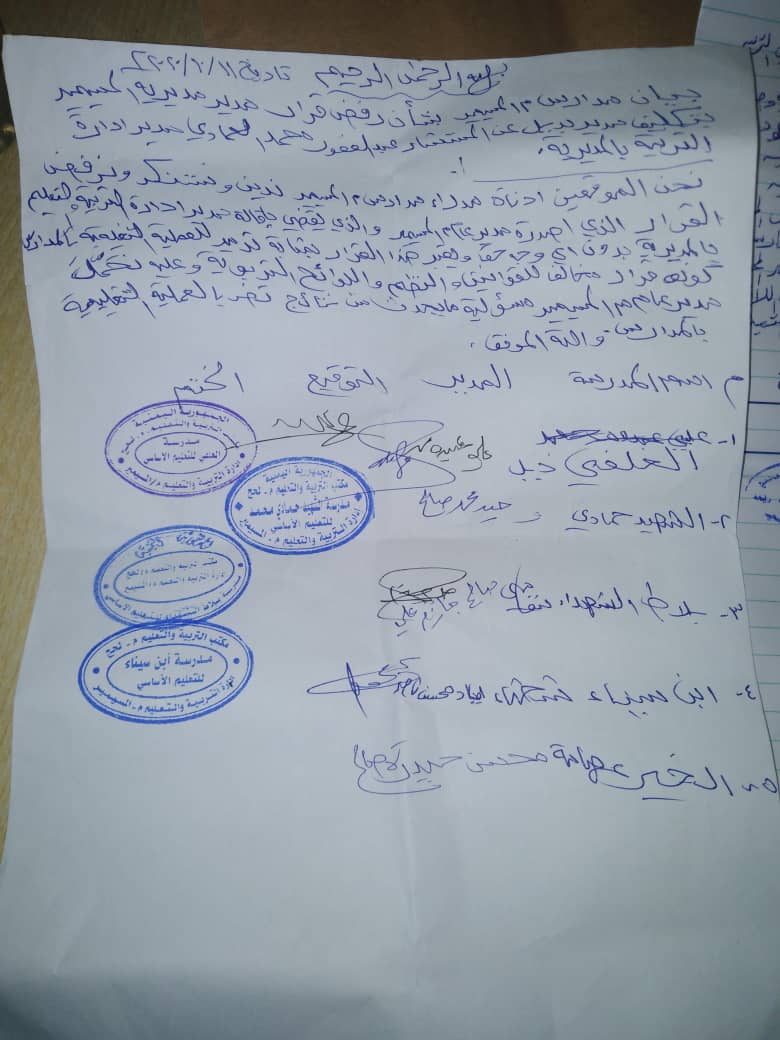 بسم الله الرحمن الرحيم تاريخ ١١/١٠/٢٠٢٢
بيان مدارس م المسيمير بشأن رفض قرار مدير مديرية المسيمير
بتكليف مدير بديل عن المستشار عبدالغفور محمد العمادي مدير ادارة
التربية بالمديرية.
نحن الموقعين ادناة مدراء مدارس م المسيمير ندين ونستنكر ونرفض
القرار الذي اصدرة مدير عام المسيمير والذي يقضي بإقالة مدير ادارة التربية والتعليم
بالمديرية بدون اي وجه حق ويعتبر هذا القرار بمثابة تدمير للعملية التعليمية بالمدارس
كونه قرار مخالف للقوانين والنظم واللوائح التربوية وعليه نحمل
مدير عام م المسيمير مسؤلية مايحدث من نتائج تضر بالعملية التعليمية
بالمدارس والله الموفق.
م اسم المدرسة المدير التوقيع الختم
١-
٢- الشهيد حمادي وحيد محمد صالح
٣- بلاط الشهداء
٤- ابن سيناء
٥- الخير محسن حيدرة صالح
الجمهورية اليمنية
مدرسة
للتعليم الأساسي
إدارة التربية والتعليم م/المسيمير
الجمهورية اليمنية
مكتب التربية والتعليم م - لحج
مدرسة الشهيد حمادي محمد
للتعليم الأساسي
إدارة التربية والتعليم م - المسيمير
مكتب التربية والتعليم م/لحج
إدارة التربية والتعليم م/المسيمير
مدرسة بلاط الشهداء للتعليم الأساسي
مكتب التربية والتعليم م - لحج
مدرسة أبن سيناء
للتعليم الأساسي
إدارة التربية والتعليم م - المسيمير